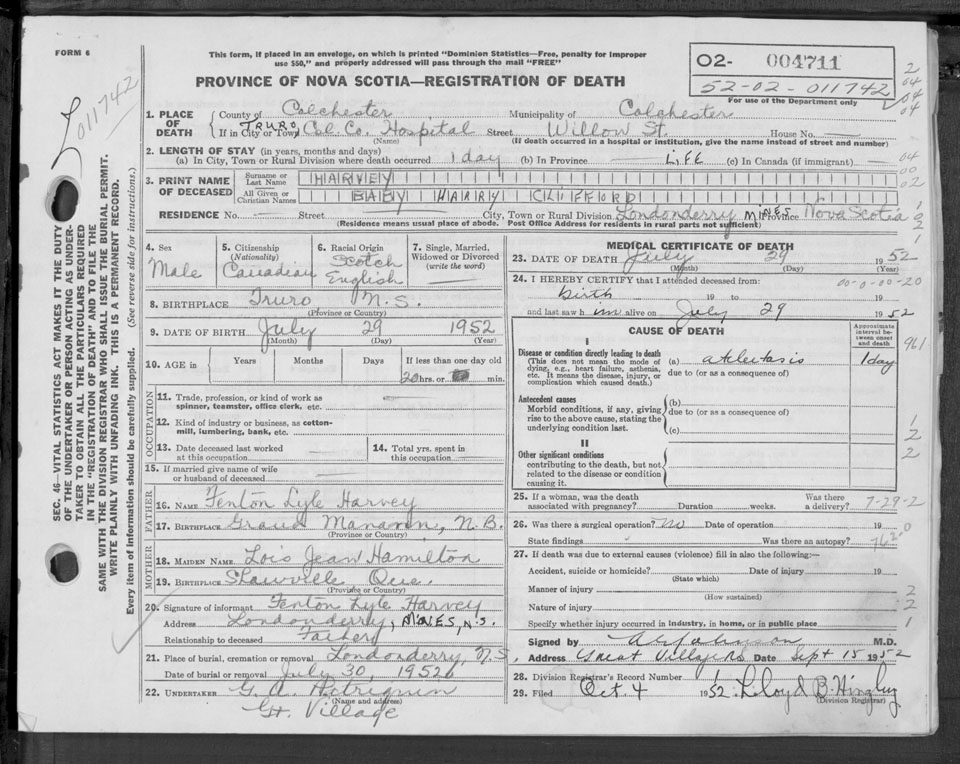 FORM 6
This form, if placed in an envelope, on which is printed "Dominion Statistics—Free, penalty for improper
use $50," and properly addressed will pass through the mail "FREE"
PROVINCE OF NOVA SCOTIA—REGISTRATION OF DEATH
02- 004711
52-02-011742
For use of the Department only
011742
SEC. 46—VITAL STATISTICS ACT MAKES IT THE DUTY
OF THE UNDERTAKER OR PERSON ACTING AS UNDER-
TAKER TO OBTAIN ALL THE PARTICULARS REQUIRED
IN THE "REGISTRATION OF DEATH" AND TO FILE THE
SAME WITH THE DIVISION REGISTRAR WHO SHALL ISSUE THE BURIAL PERMIT.
WRITE PLAINLY WITH UNFADING INK. THIS IS A PERMANENT RECORD.
Every item of information should be carefully supplied. (See reverse side for instructions.)
1. PLACE OF DEATH County of Colchester Municipality of Colchester
If in City or Town TRURO, Col. Co. Hospital Street Willow St. House No.
(Name) (If death occurred in a hospital or institution, give the name instead of street and number)
2. LENGTH OF STAY (in years, months and days)
(a) In City, Town or Rural Division where death occurred 1 day (b) In Province LIFE (c) In Canada (if immigrant)
3. PRINT NAME OF DECEASED Surname or Last Name HARVEY
All Given or Christian Names BABY HARRY CLIFFORD
RESIDENCE No. Street City, Town or Rural Division Londonderry MINES Province Nova Scotia
(Residence means usual place of abode. Post Office Address for residents in rural parts not sufficient)
4. Sex Male
5. Citizenship (Nationality) Canadian
6. Racial Origin Scotch English
7. Single, Married, Widowed or Divorced (write the word)
8. BIRTHPLACE Truro N.S.
(Province or Country)
9. DATE OF BIRTH July 29 1952
(Month) (Day) (Year)
10. AGE in Years Months Days If less than one day old
20 hrs. or min.
OCCUPATION
11. Trade, profession, or kind of work as
spinner, teamster, office clerk, etc.
12. Kind of industry or business, as cotton-
mill, lumbering, bank, etc.
13. Date deceased last worked
at this occupation
14. Total yrs. spent in
this occupation
15. If married give name of wife
or husband of deceased
FATHER
16. NAME Fenton Lyle Harvey
17. BIRTHPLACE Grand Manann, N.B.
(Province or Country)
MOTHER
18. MAIDEN NAME Lois Jean Hamilton
19. BIRTHPLACE Shawville Que.
(Province or Country)
20. Signature of informant Fenton Lyle Harvey
Address Londonderry, MINES, N.S.
Relationship to deceased Father
21. Place of burial, cremation or removal Londonderry, N.S.
Date of burial or removal July 30, 1952
22. UNDERTAKER G. A.
(Name and address)
Gt. Village
MEDICAL CERTIFICATE OF DEATH
23. DATE OF DEATH July 29 1952
(Month) (Day) (Year)
24. I HEREBY CERTIFY that I attended deceased from:
Birth 19 to 19
00-0-00-20
and last saw him alive on July 29 1952
CAUSE OF DEATH
Approximate interval between onset and death
961
I
Disease or condition directly leading to death
(This does not mean the mode of
dying, e.g., heart failure, asthenia,
etc. It means the disease, injury, or
complication which caused death.)
(a) atelectasis 1 day
due to (or as a consequence of)
Antecedent causes
Morbid conditions, if any, giving
rise to the above cause, stating the
underlying condition last.
(b)
due to (or as a consequence of)
(c)
II
Other significant conditions
contributing to the death, but not
related to the disease or condition
causing it.
25. If a woman, was the death Was there
associated with pregnancy? Duration weeks. a delivery? 7-29-2
26. Was there a surgical operation? No Date of operation 19
State findings Was there an autopsy? 7620
27. If death was due to external causes (violence) fill in also the following:—
Accident, suicide or homicide? Date of injury 19
(State which)
Manner of injury
(How sustained)
Nature of injury
Specify whether injury occurred in industry, in home, or in public place
Signed by Johnson M.D.
Address Great Village NS Date Sept 15 1952
28. Division Registrar's Record Number 1
29. Filed Oct. 4 1952 Lloyd B. Hingley
(Division Registrar)